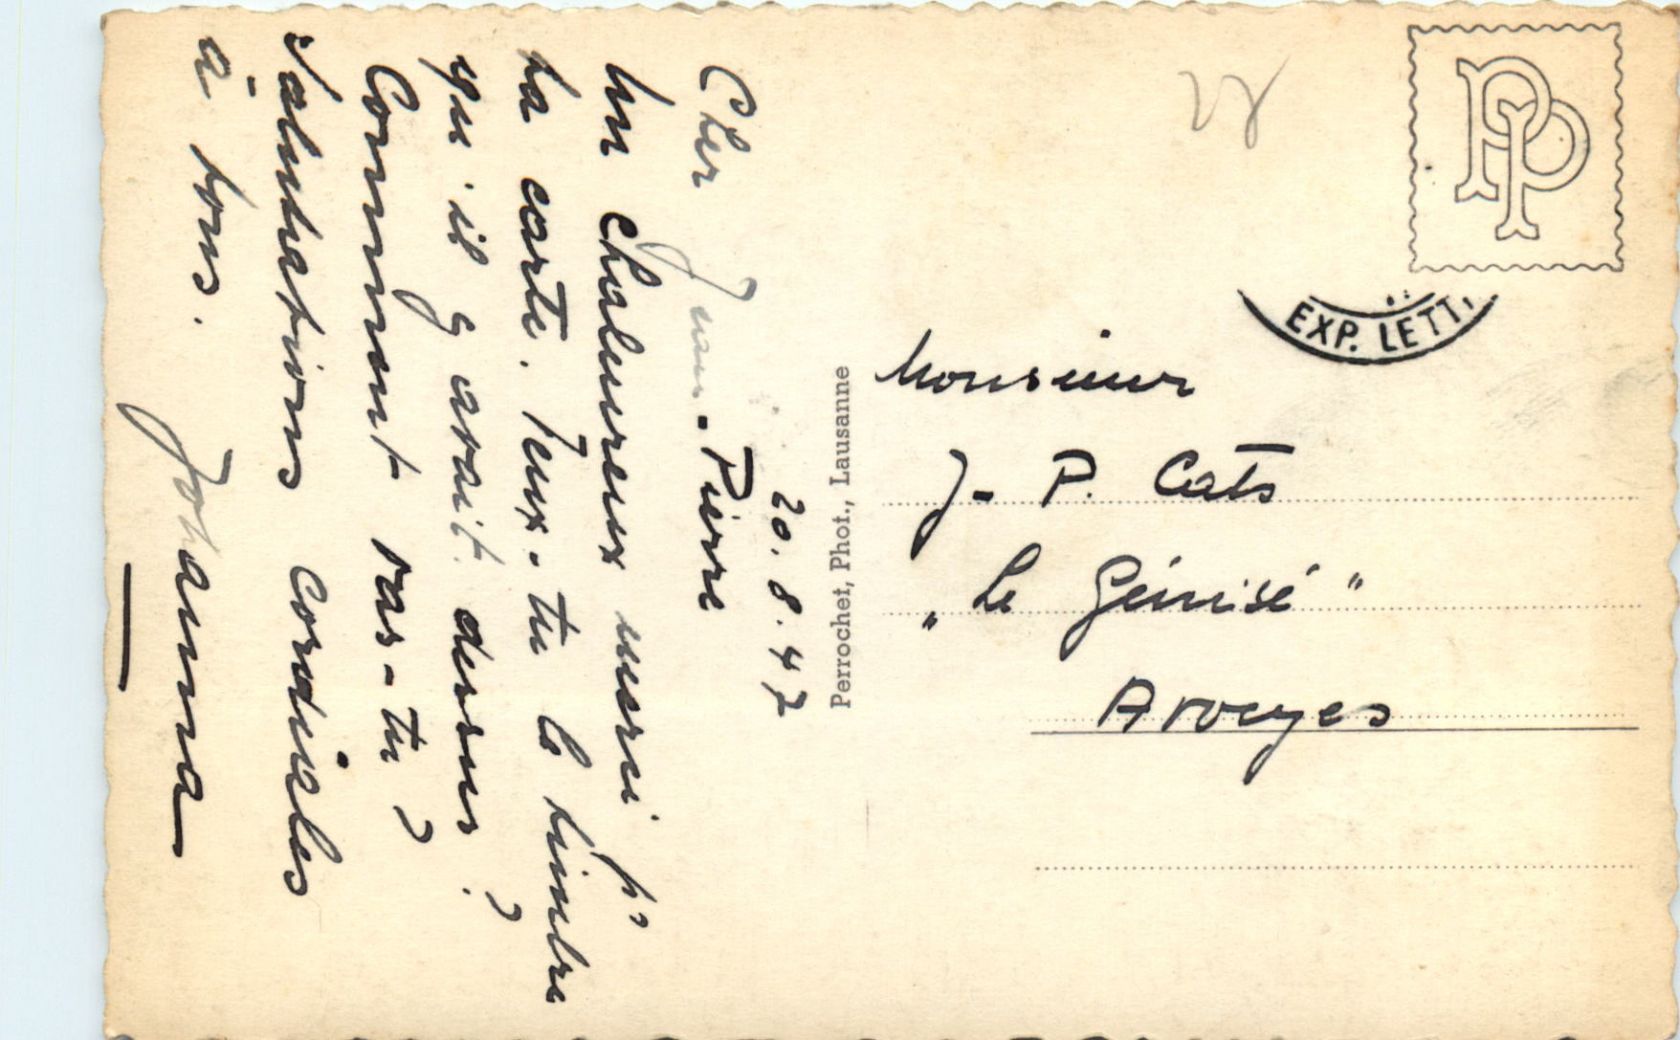 20.8.47
Cher Jean-Pierre
Un chaleureux merci p'
ta carte. Veux-tu le timbre
qu'il y avait dessus ?
Comment vas-tu ?
Salutations cordiales
à tous. Johanna
Perrochet, Phot., Lausanne
PP
EXP. LETT.
Monsieur
J-P. Cats
Arveyes